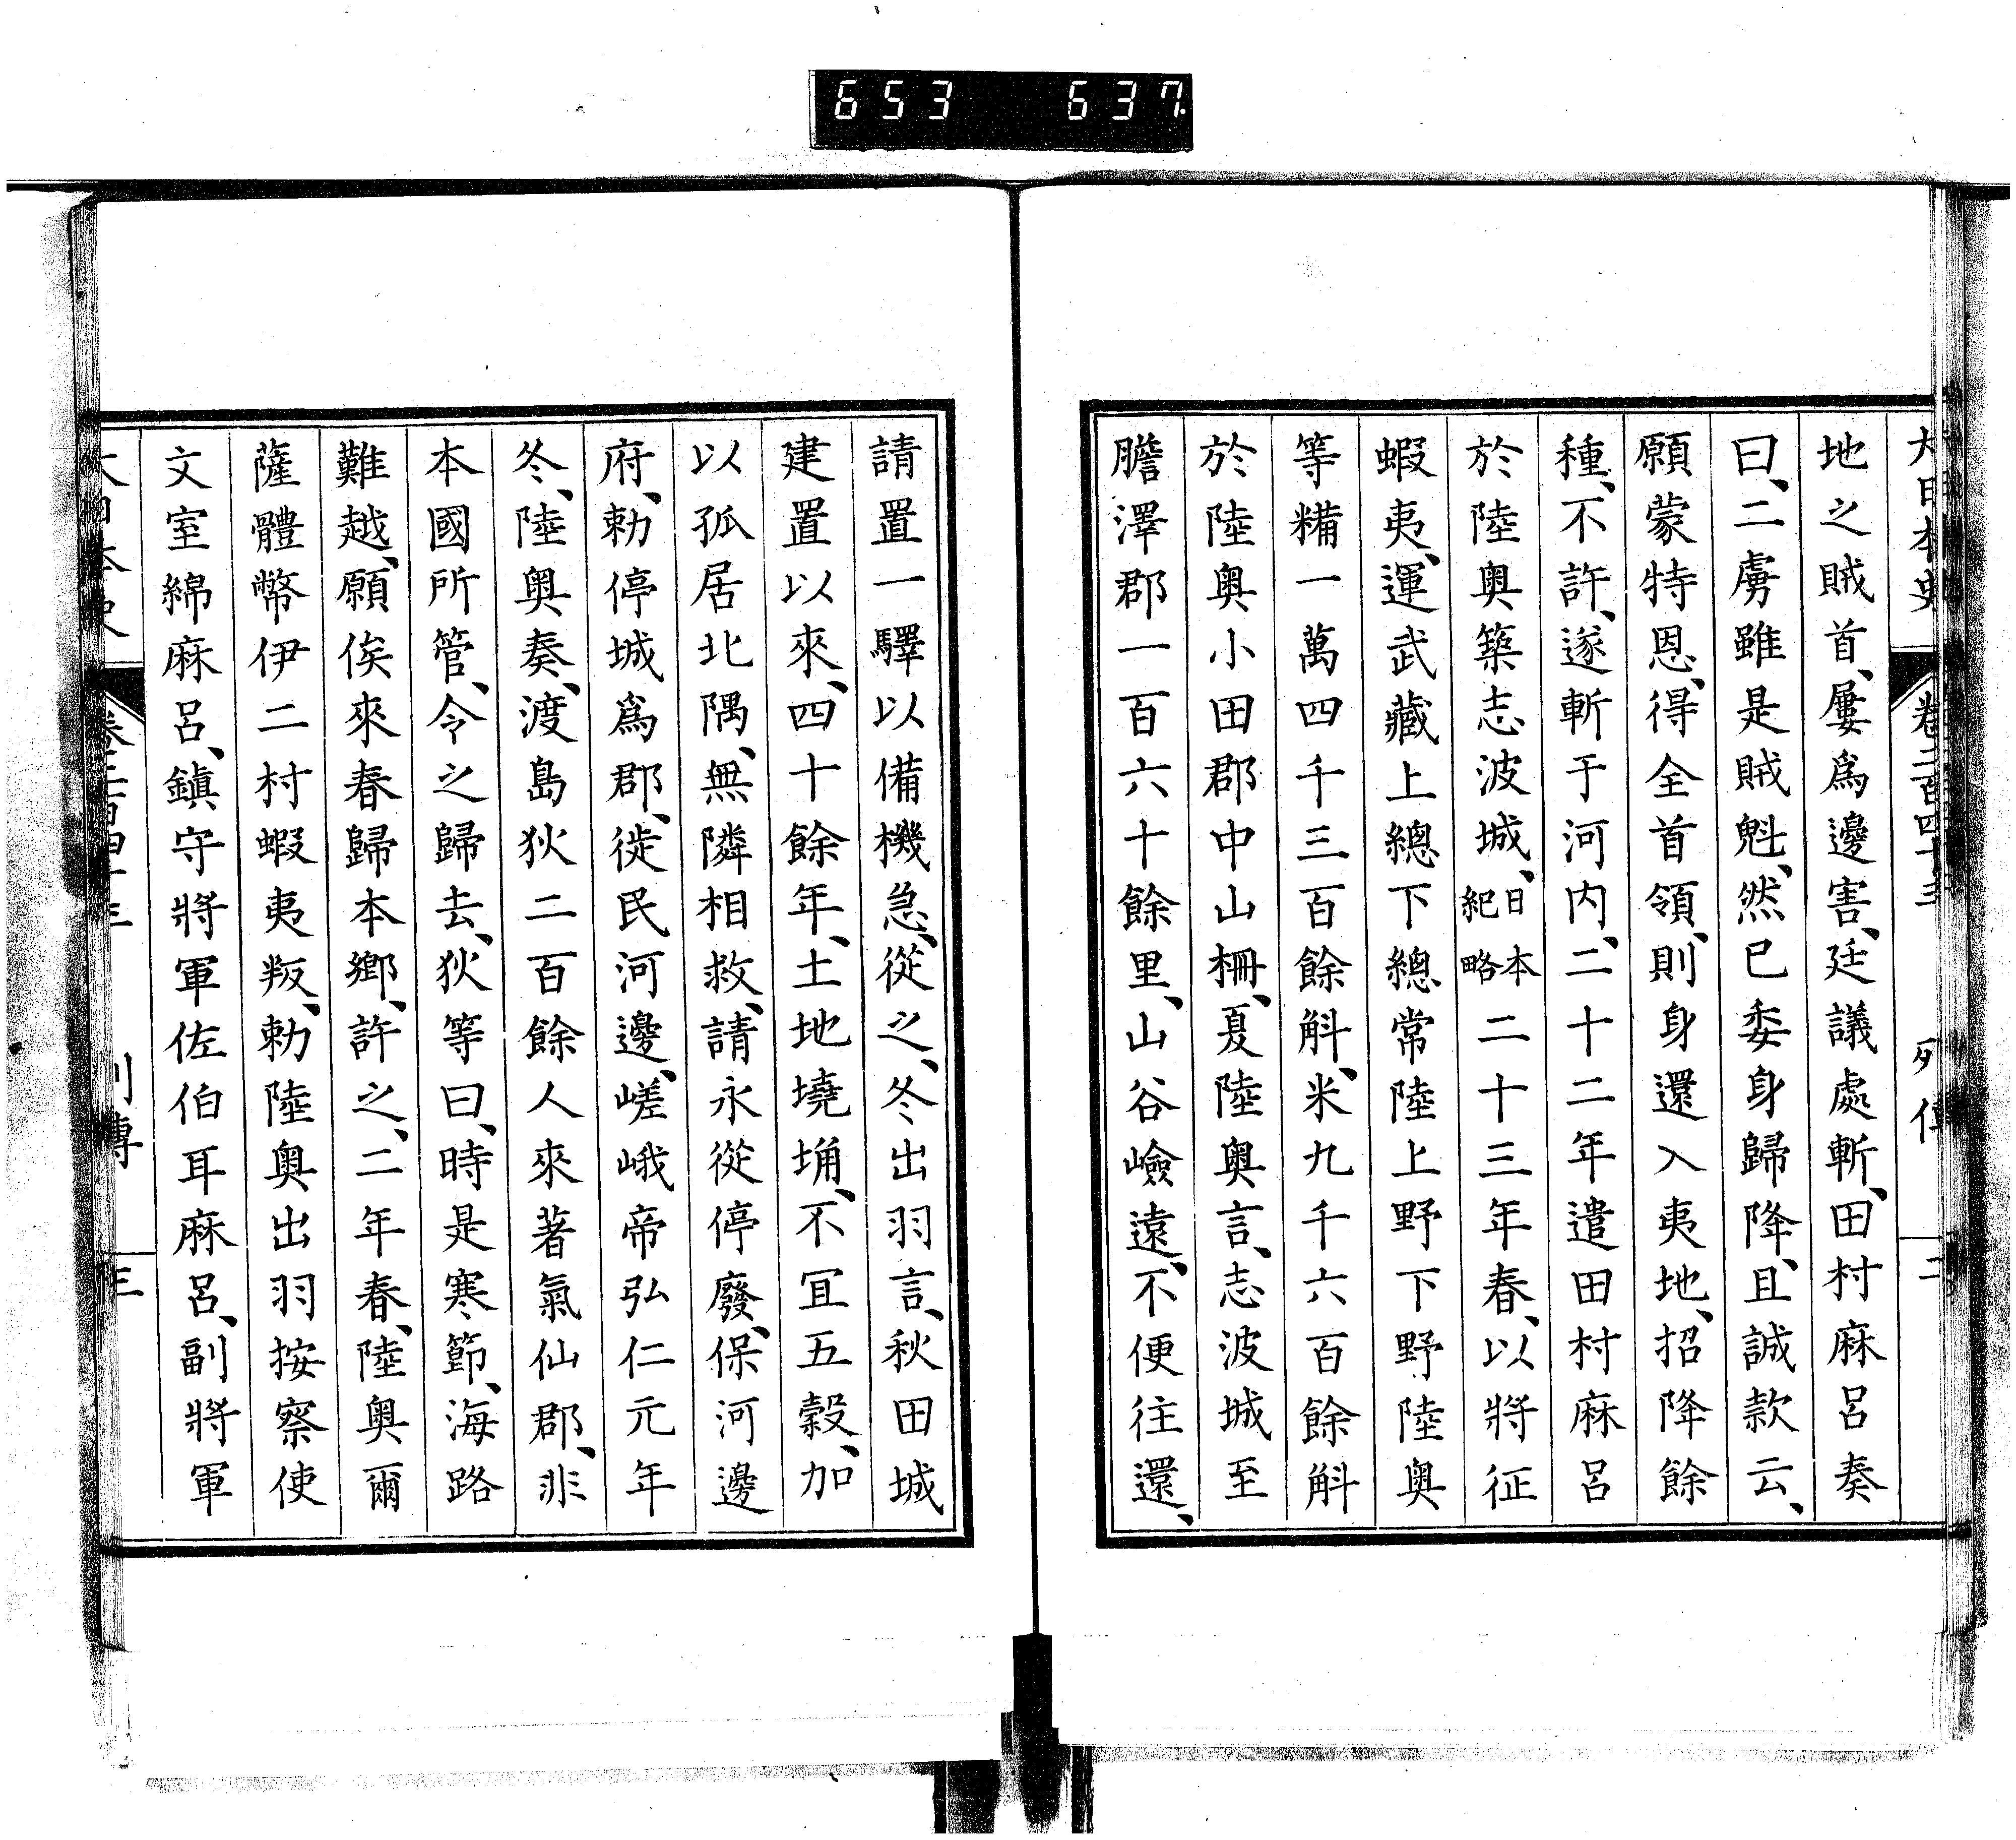 653 637
大日本史 卷二百四十三 列傳 二
地之賊首、屢爲邊害、廷議處斬、田村麻呂奏
曰、二虜雖是賊魁、然已委身歸降、且誠款云、
願蒙特恩、得全首領、則身還入夷地、招降餘
種、不許、遂斬于河内、二十二年遣田村麻呂
於陸奥築志波城、日本紀略二十三年春、以將征
蝦夷、運武藏上總下總常陸上野下野陸奥
等糒一萬四千三百餘斛、米九千六百餘斛
於陸奥小田郡中山柵、夏陸奥言、志波城至
膽澤郡一百六十餘里、山谷嶮遠、不便往還、
請置一驛以備機急、從之、冬出羽言、秋田城
建置以來、四十餘年、土地墝埆、不冝五穀、加
以孤居北隅、無隣相救、請永從停廢、保河邊
府、勅停城爲郡、徙民河邊、嵯峨帝弘仁元年
冬、陸奥奏、渡島狄二百餘人來著氣仙郡、非
本國所管、令之歸去、狄等曰、時是寒節、海路
難越、願俟來春歸本鄉、許之、二年春、陸奥爾
薩體幣伊二村蝦夷叛、勅陸奥出羽按察使
文室綿麻呂、鎮守將軍佐伯耳麻呂、副將軍
大日本史 卷二百四十三 列傳 三